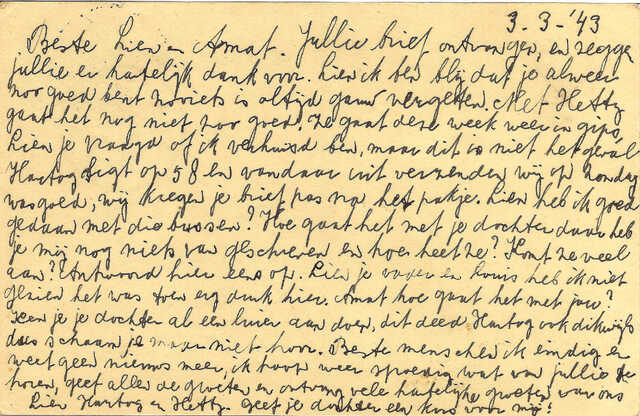 3-3-'43
Beste Lien en Amat. Jullie brief ontvangen, en zegge
jullie er hartelijk dank voor. Lien ik ben blij dat je alweer
zoo goed bent zooiets is altijd gauw vergeten. Met Hetty
gaat het nog niet zoo goed. Ze gaat deze week weer in gips,
Lien je vraagd of ik verhuisd ben, maar dit is niet het geval
Hartog ligt op 58 en vandaar uit verzenden wij op zondag
wasgoed, wij kregen je brief pas na het pakje. Lien heb ik goed
gedaan met die bussen? Hoe gaat het met je dochter daar heb
je mij nog niets van geschreven en hoe heet ze? Komt ze veel
aan? Antwoord hier eens op. Lien je vader en Louis heb ik niet
gezien het was toen erg druk hier. Amat hoe gaat het met jou?
Keen je je dochter al een luier aan doen, dit deed Hartog ook dikwijls
dus schaam je maar niet hoor. Beste menschen ik eindig er
weet geen nieuws meer, ik hoop weer spoedig wat van jullie te
horen, geef allen de groeten en ontvang vele hartelijke groeten van ons
Lien Hartog en Hetty. Geef je dochter een kus voor mij